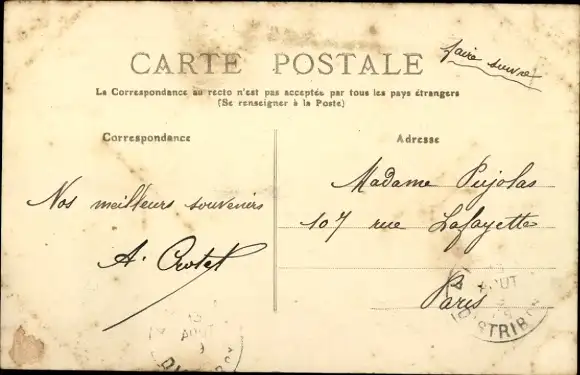 faire suivre
CARTE POSTALE
La Correspondance au recto n'est pas acceptée par tous les pays étrangers
(Se renseigner à la Poste)
Correspondance
Adresse
Nos meilleurs souvenirs
A.
Madame Pujolas
107 rue Lafayette
Paris
AOUT
DISTRIB
AOUT